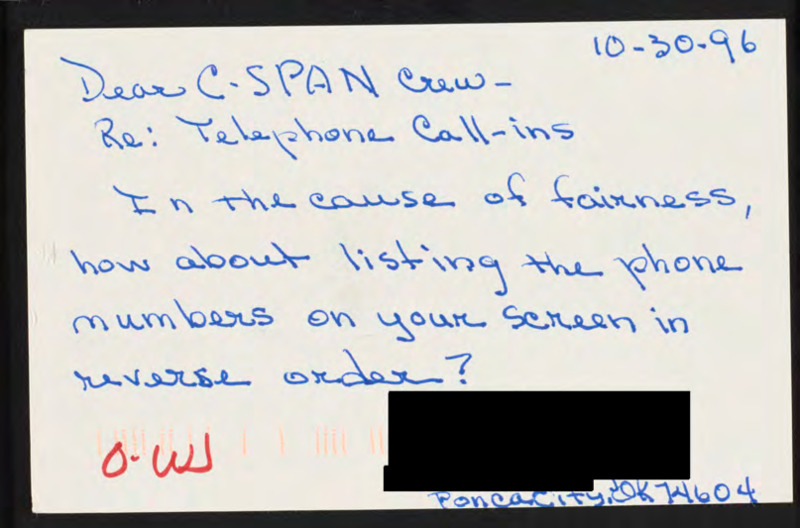 10-30-96
Dear C-SPAN Crew-
Re: Telephone Call-ins
In the cause of fairness,
how about listing the phone
numbers on your screen in
reverse order?
Ponca City, OK 74604